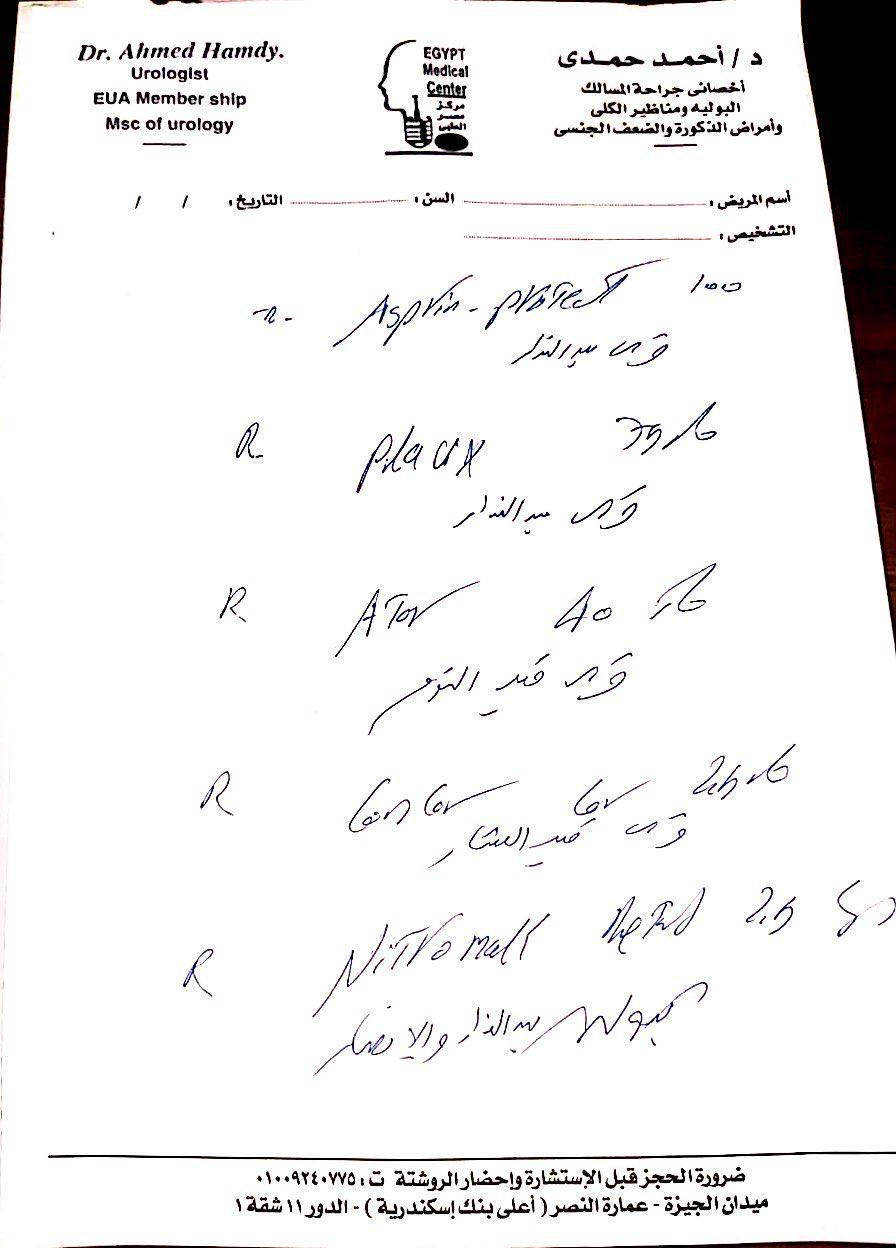 Dr. Ahmed Hamdy.
Urologist
EUA Member ship
Msc of urology
EGYPT
Medical
Center
مركز
مصر
الطبى
د / أحمد حمدى
أخصائى جراحة المسالك
البوليه ومناظير الكلى
وأمراض الذكورة والضعف الجنسى
أسم المريض : السن : التاريخ : / /
التشخيص :
Aspirin - protect 100
قرص بعد الغذاء
R Plavix 75
قرص بعد الغذاء
R Ator 40
قرص قبل النوم
R Concor cor 2,5
قرص قبل العشاء
R Nitromack Retard 2,5
كبسوله بعد الغذاء والافطار
ضرورة الحجز قبل الإستشارة وإحضار الروشتة ت : ٠١٠٠٩٢٤٠٧٧٥
ميدان الجيزة - عمارة النصر ( أعلى بنك إسكندرية ) - الدور ١١ شقة ١